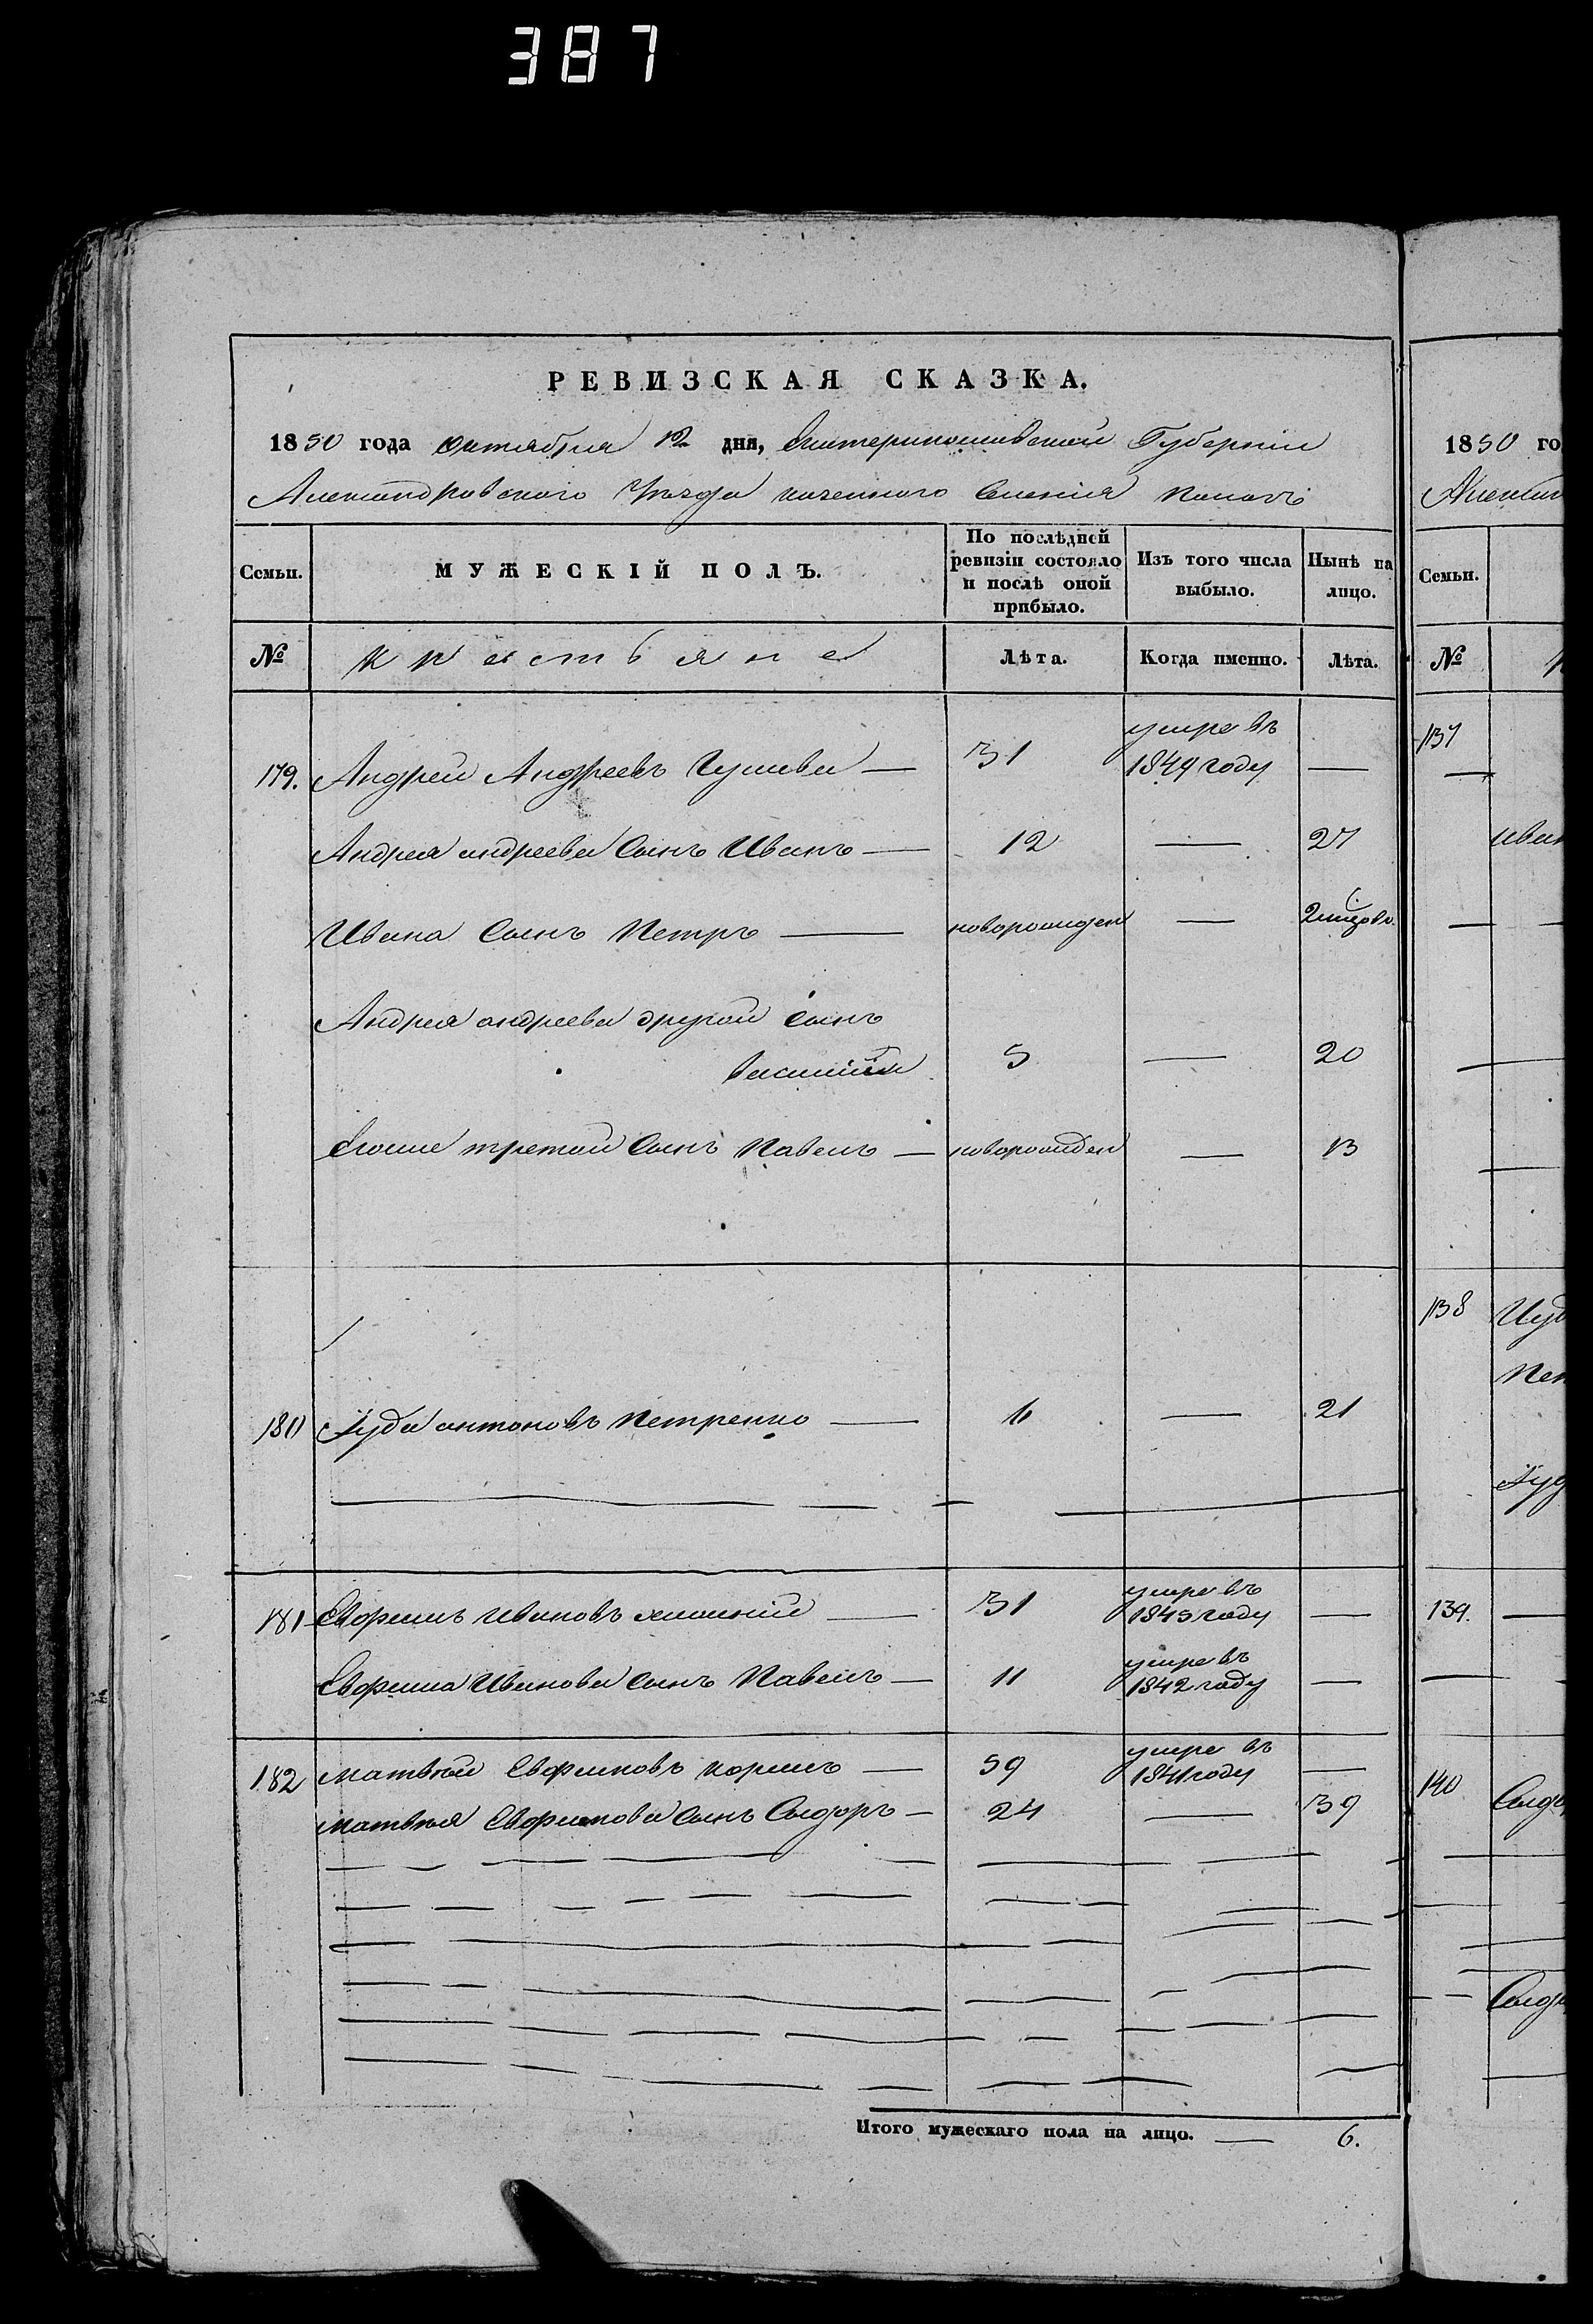 387
РЕВИЗСКАЯ СКАЗКА.
1850 года октября 12 дня, Екатеринославской Губернии
Александровского Уезда казенного Селения
Семьи.
МУЖЕСКІЙ ПОЛЪ.
По послѣдней ревизіи состояло и послѣ оной прибыло.
Изъ того числа выбыло.
Нынѣ на лицо.
№
крестьяне
Лѣта.
Когда именно.
Лѣта.
179. Андрей Андреевъ — 31 умре въ 1849 году —
Андрея андреева Сынъ Иванъ — 12 — 27
Ивана Сынъ Петръ — новорожден —
Андрея андреева другой Сынъ
Василий 5 — 20
Егоже третой Сынъ Павелъ — новорожден — 13
180 Іуда антоновъ Петренко — 6 — 21
181 Евфимъ Ивановъ — 31 умре въ 1843 году —
Евфима Иванова Сынъ Павелъ — 11 умре въ 1842 году —
182 матвѣй Евфимовъ — 59 умре въ 1841 году —
матвѣя Евфимова Сынъ Сидоръ — 24 — 39
Итого мужескаго пола на лицо. — 6.
1850 го
Семьи.
№
137
иван
138
Іуд
139.
140
Сидо
Сидо